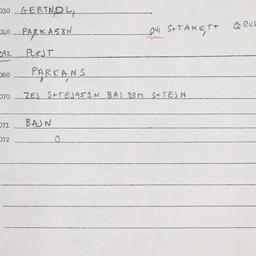 030 GERTNDL,
040 PARKA58N 041 S+TAKET+ QRUS
042 PLEJT
060 PARKANS
070 ZEJ S+TEJ451N BAJ D3M S+TEJN
071 BAJN
072 O